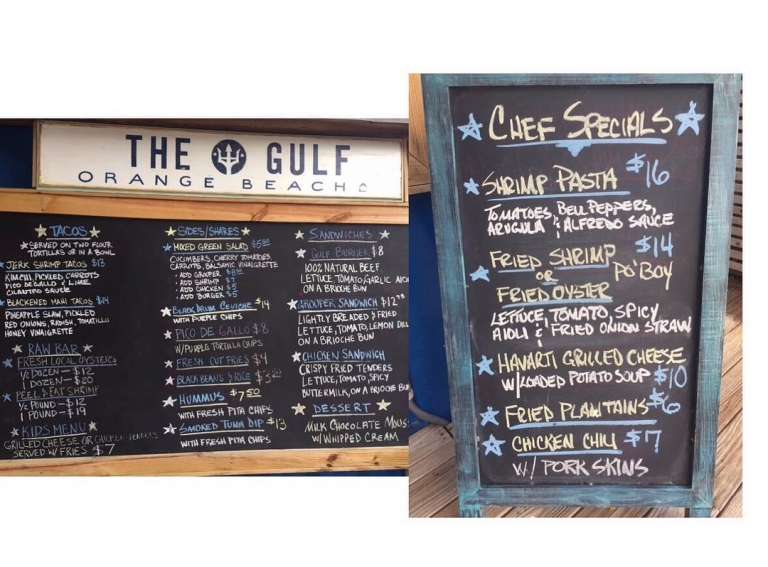 THE GULF
ORANGE BEACH
TACOS
SERVED ON TWO FLOUR
TORTILLAS OR IN A BOWL
JERK SHRIMP TACOS $13
KIMCHI PICKLED CARROTS
PICO DE GALLO & LIME
CILANTRO SAUCE
BLACKENED MAHI TACOS $14
PINEAPPLE SLAW, PICKLED
RED ONIONS, RADISH, TOMATILLO
HONEY VINAIGRETTE
RAW BAR
FRESH LOCAL OYSTERS
½ DOZEN - $12
1 DOZEN - $20
PEEL & EAT SHRIMP
½ POUND - $12
1 POUND - $19
KIDS MENU
GRILLED CHEESE OR CHICKEN TENDERS
SERVED W/ FRIES $7
SIDES/SHARES
MIXED GREEN SALAD
CUCUMBERS, CHERRY TOMATOES,
CARROTS, BALSAMIC VINAIGRETTE
· ADD GROUPER
· ADD SHRIMP
· ADD CHICKEN $5
· ADD BURGER $5
BLACK DRUM CEVICHE $14
WITH PURPLE CHIPS
PICO DE GALLO $8
W/PURPLE TORTILLA CHIPS
FRESH CUT FRIES $4
BLACK BEANS & RICE
HUMMUS $7.50
WITH FRESH PITA CHIPS
SMOKED TUNA DIP $13
WITH FRESH PITA CHIPS
SANDWICHES
GULF BURGER $8
100% NATURAL BEEF
LETTUCE, TOMATO, GARLIC
ON A BRIOCHE BUN
GROUPER SANDWICH $12
LIGHTLY BREADED & FRIED
LETTUCE, TOMATO, LEMON DILL
ON A BRIOCHE BUN
CHICKEN SANDWICH
CRISPY FRIED TENDERS
LETTUCE, TOMATO, SPICY
BUTTERMILK, ON A BRIOCHE BUN
DESSERT
MILK CHOCOLATE MOUS
W/WHIPPED CREAM
CHEF SPECIALS
SHRIMP PASTA $16
TOMATOES, BELL PEPPERS,
ARUGULA & ALFREDO SAUCE
FRIED SHRIMP $14
OR PO'BOY
FRIED OYSTER
LETTUCE, TOMATO, SPICY
AIOLI & FRIED ONION STRAW
HAVARTI GRILLED CHEESE
W/LOADED POTATO SOUP $10
FRIED PLANTAINS $6
CHICKEN CHILI $7
W/ PORK SKINS